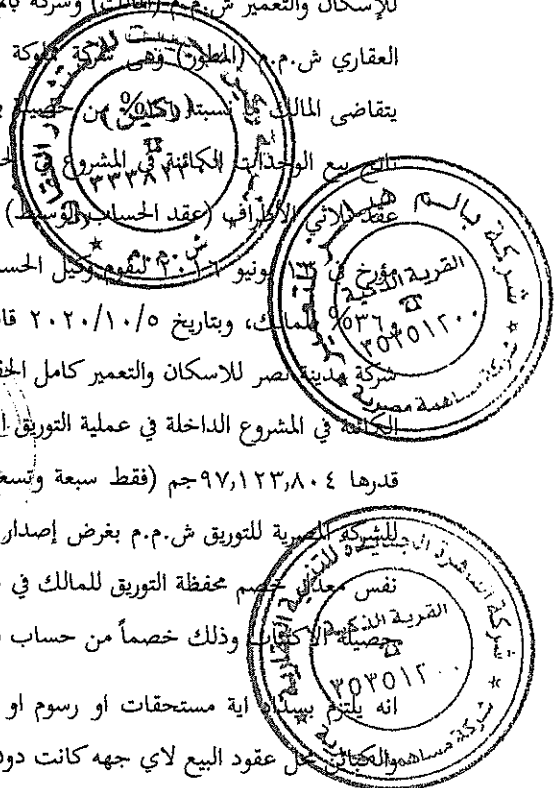 للإسكان والتعمير ش.م.م (المالك) وشركة بالم
العقاري ش.م.م (المطور) وهى شركة مملوكة
يتقاضى المالك نسبة من حصيلة
ناتج بيع الوحدات الكائنة في المشروع
عقد ثلاثي الأطراف (عقد الحساب الوسيط)
مؤرخ في ١٣ يونيو ٢٠١٦ لتقوم وكيل الحساب
و٣٦% للمالك، وبتاريخ ٢٠٢٠/١٠/٥
شركة مدينة نصر للاسكان والتعمير كامل
الكائنة في المشروع الداخلة في عملية التوريق
قدرها ٩٧,١٢٣,٨٠٤جم (فقط سبعة وتسع
للشركة المصرية للتوريق ش.م.م بغرض إصدار
نفس معدل خصم محفظة التوريق للمالك في
حصيلة الاكتتاب وذلك خصماً من حساب
انه يلتزم بسداد اية مستحقات او رسوم او
محل عقود البيع لاي جهه كانت دون
ش.م.م
شركة بالم هيلز للتعمير
القرية الذكية
٣٥٣٥١٢٠٠
شركة مساهمة مصرية
شركة القاهرة الجديدة للتنمية العقارية
القرية الذكية
٣٥٣٥١٢٠٠
شركة مساهمة مصرية